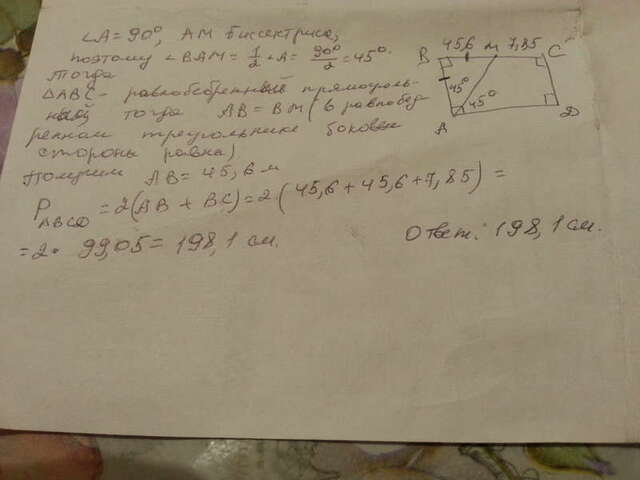 ∠A = 90°, AM биссектриса,
поэтому ∠BAM = 1/2 ∠A = 90°/2 = 45°.
тогда
△ABC - равнобедренный прямоуголь-
ный, тогда AB = BM (в равнобед-
ренном треугольнике боковые
стороны равна)
Получим AB = 45,6 м
P ABCD = 2(AB + BC) = 2·(45,6 + 45,6 + 7,85) =
= 2· 99,05 = 198,1 см.
Ответ: 198,1 см.
B 45,6 M 7,85 C
45°
45°
A D